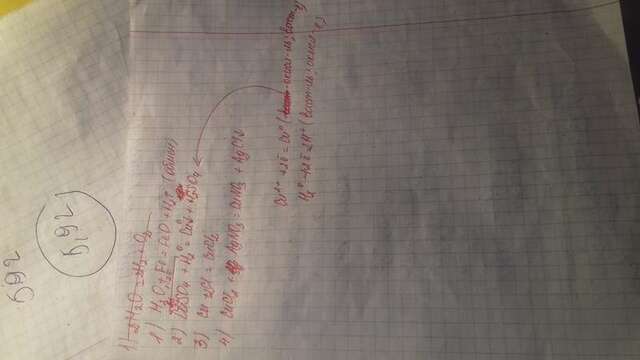 592
5,92
1) 2H2O = 2H2 + O2
1) H2O + Fe = FeO + H2↑ (обмен)
2) CuSO4 + H2⁰ = Cu⁰↓ + H2SO4
3) Cu + 2Cl = CuCl2
4) CuCl2 + AgNO3 = CuNO3 + AgCl↓
Cu²⁺ + 2ē = Cu⁰ (окисл-ль; восст-е)
H2⁰ - 2ē = 2H⁺ (восст-ль; окисл-е)